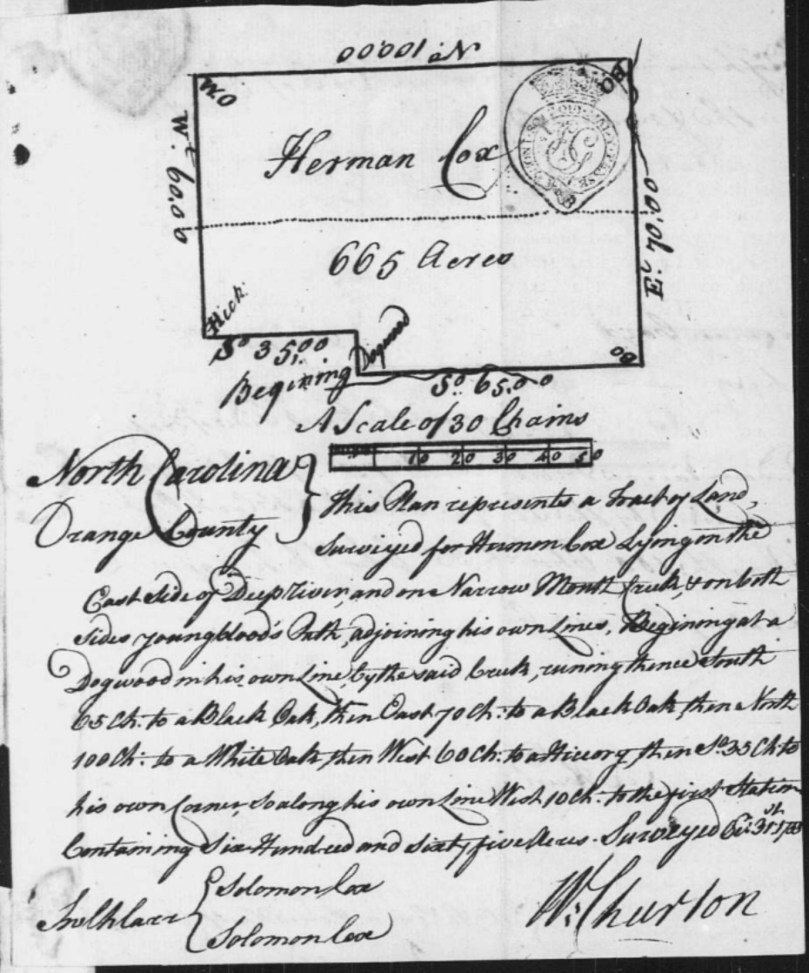 No 100,00
W.O
BO
W. 60.00
Herman Cox
E. 70.00
665 Acres
Hick.
So 35,00
Begining Dogwood
BO
So 65,00
A Scale of 30 Chains
10 20 30 40 50
North Carolina }
Orange County
This Plan represents a Tract of Land,
Surveyed for Hermon Cox Lying on the
East Side of Deep River, and on a Narrow Mouth Creek, & on both
sides youngblood's Path, adjoining his own Lines, Begining at a
Dogwood in his own Line, by the said Creek, runing thence South
65 Ch: to a Black Oak, then East 70 Ch: to a Black Oak, then North
100 Ch: to a White Oak, then West 60 Ch: to a Hicory, then So. 35 Ch. to
his own Corner, So along his own Line West 10 Ch. to the first Station
Containing Six Hundred and sixty five Acres. Surveyed 31st
{ Solomon Cox
Solomon Cox
Wm. Churton